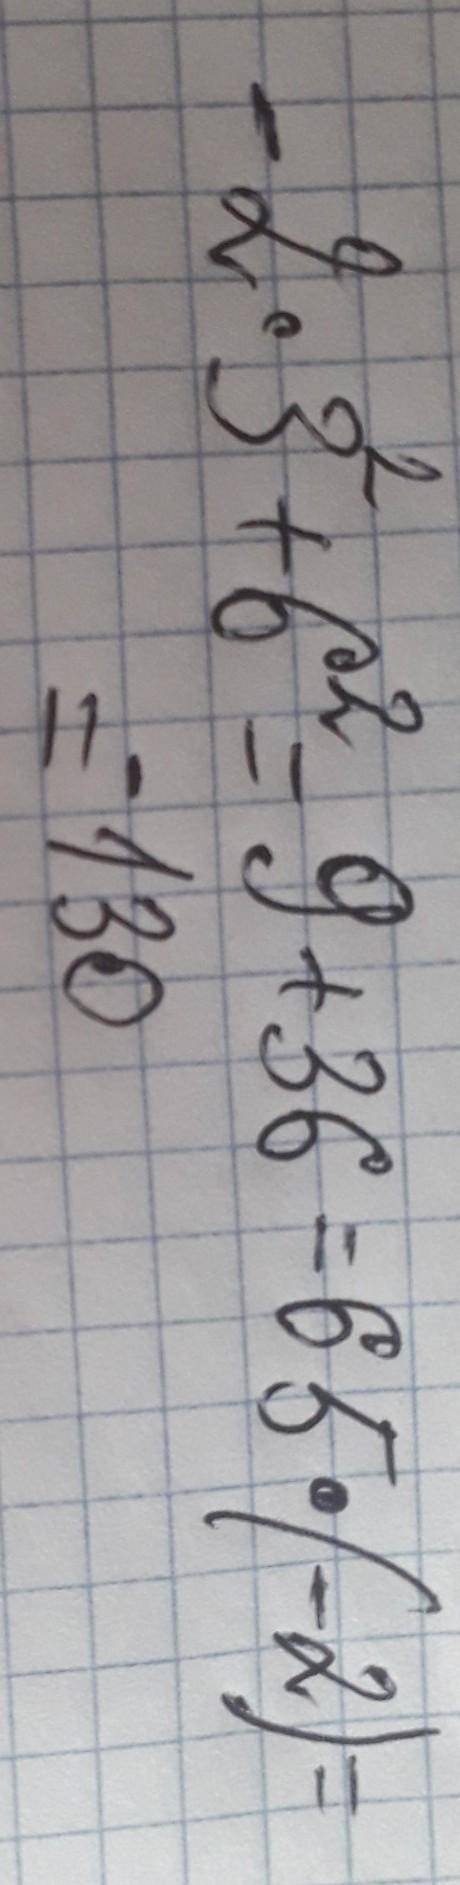 -2·3²+6²=9+36=65·(-2)=
=-130